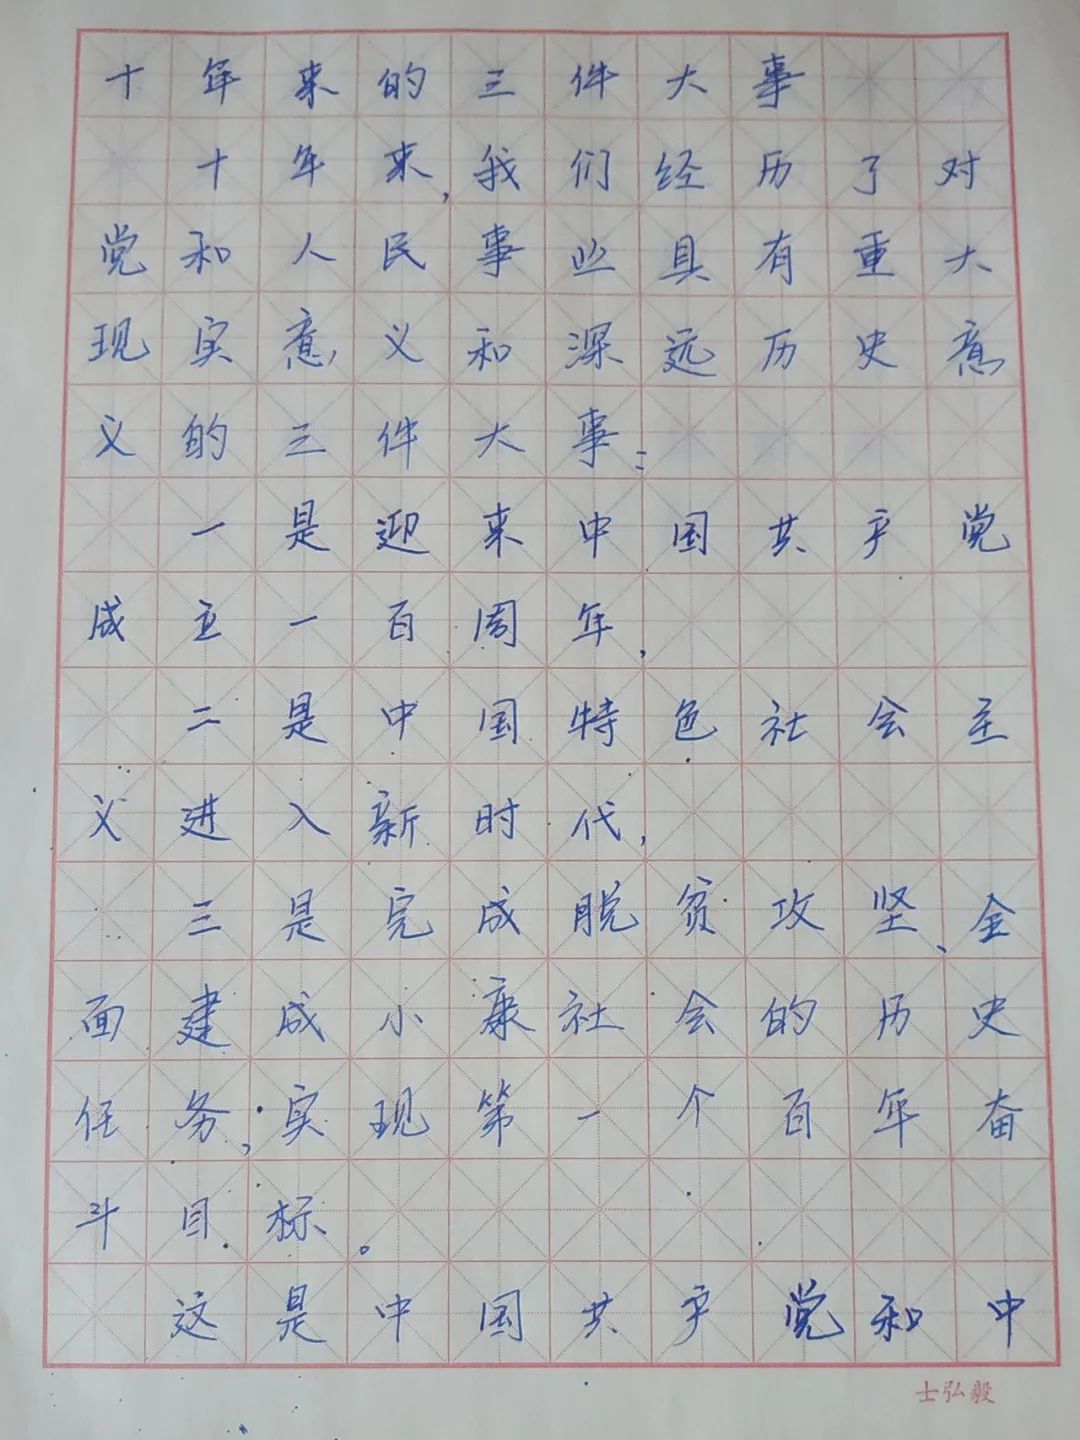 十年来的三件大事
十年来,我们经历了对
党和人民事业具有重大
现实意义和深远历史意
义的三件大事:
一是迎来中国共产党
成立一百周年,
二是中国特色社会主
义进入新时代,
三是完成脱贫攻坚、全
面建成小康社会的历史
任务,实现第一个百年奋
斗目标。
这是中国共产党和中
士弘毅